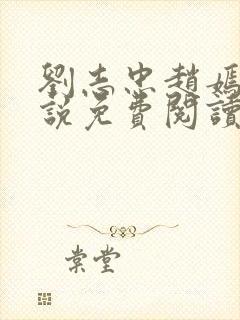 劉志忠趙嫣
說免費閱讀
棠堂